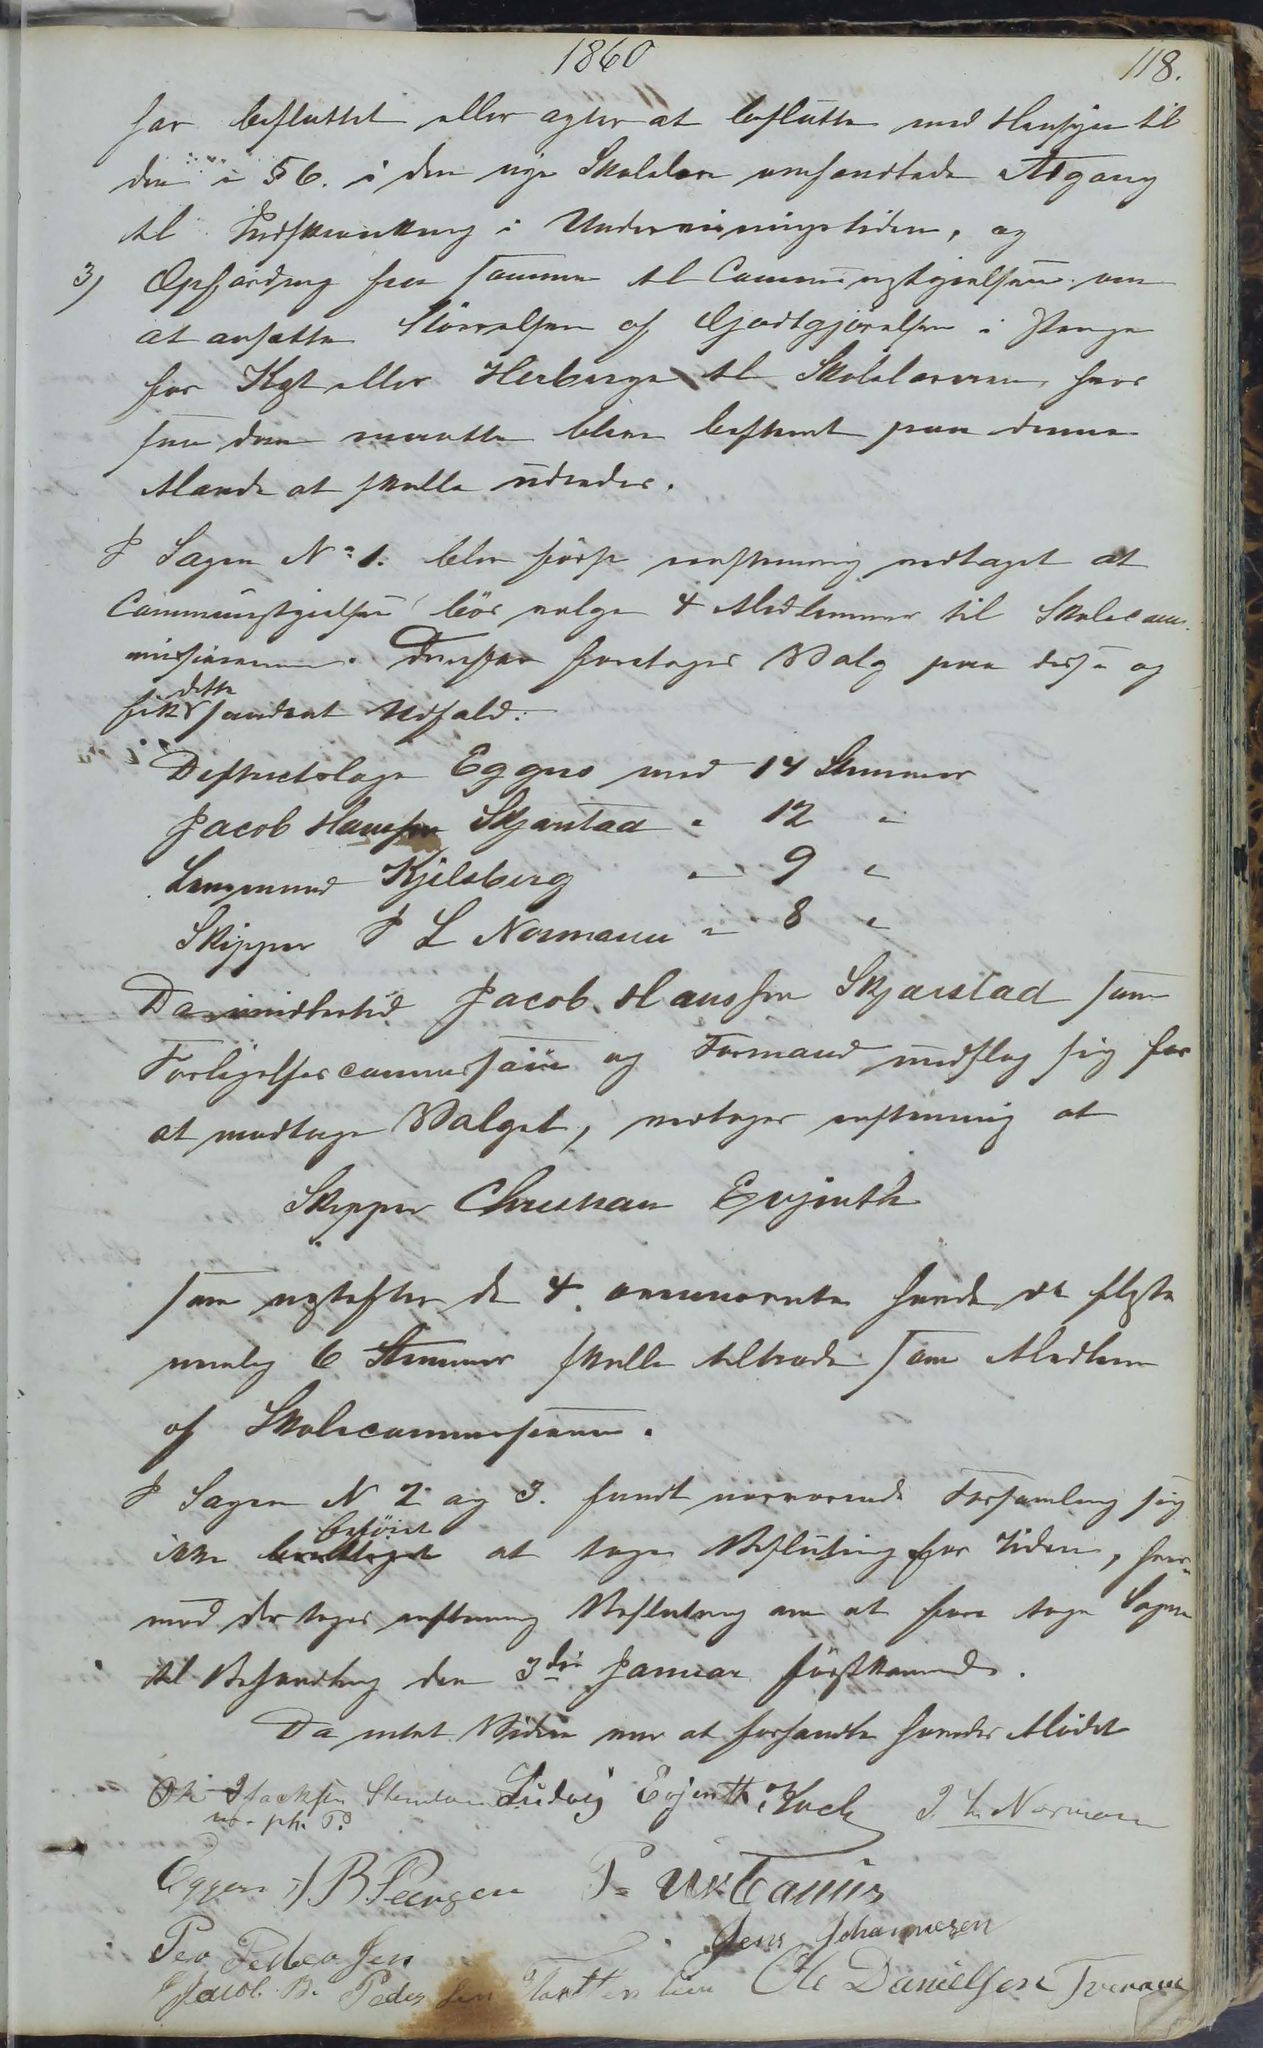 1860
118.
har besluttet eller agter at beslutte med Hensyn til
den i § 6. i den nye Skolelov omhandlede Adgang
til Indskrænkning i Underviisningstiden, og
3) Opfordring fra samme til Communestyrelsen om
at ansætte Størrelsen af Godtgjørelsen i Penge
for Kost eller Herberge til Skolelæreren, hvor
saadan maatte blive bestemt paa denne
Maade at skulle udredes.
I Sagen No 1. blev først eenstemmig vedtaget at
Communestyrelsen bør vælge 4 Medlemmer til Skolecom-
missionen. Derefter foretoges Valg paa disse og
fik dette saadant Udfald:
Districtslæge Eggen med 14 Stemmer
Jacob Hanssen Skjærstad " 12 "
Lensmand Kjelsberg " 9 "
Skipper I L Normann " 8 "
Da imidlertid Jacob Hanssen Skjærstad som
Forligelsescommissair og Formand undslog sig for
at modtage Valget, vedtoges eenstemmig at
Skipper Christian Evjenth
som næstefter de 4 ovennævnte havde de fleste
nemlig 6 Stemmer skulle tiltræde som Medlem
af Skolecommissionen.
I Sagen N 2 og 3. fandt nærværende Forsamling sig
ikke beføiet at tage Beslutning for Tiden, hvor-
med der toges eenstemmig Beslutning om at foretage Sagen
til Behandling den 3die Januar førstkommende.
Da intet Videre var at forhandle hævedes Mødet
Ludvig Evjenth Koch I. L. Normann
m. p. P.
Eggen B. Peersen P.
Jens Johannesen
Peo Pedersen
Jacob B. Pedersen Ole Danielsen